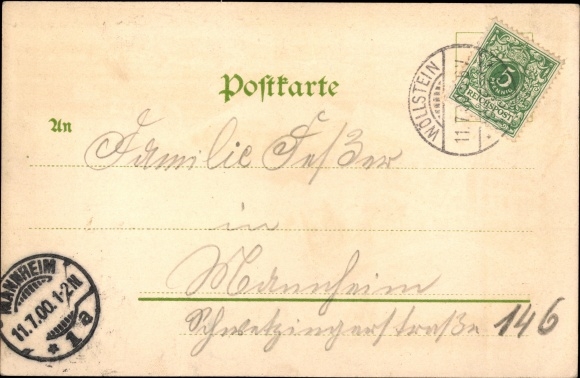 Postkarte
5
PFENNIG
REICHSPOST
WÖLLSTEIN
11.7.
An
Familie Feßer
in
Mannheim
Schwetzingerstraße 146
MANNHEIM
11.7.00.1-2N
* 1a